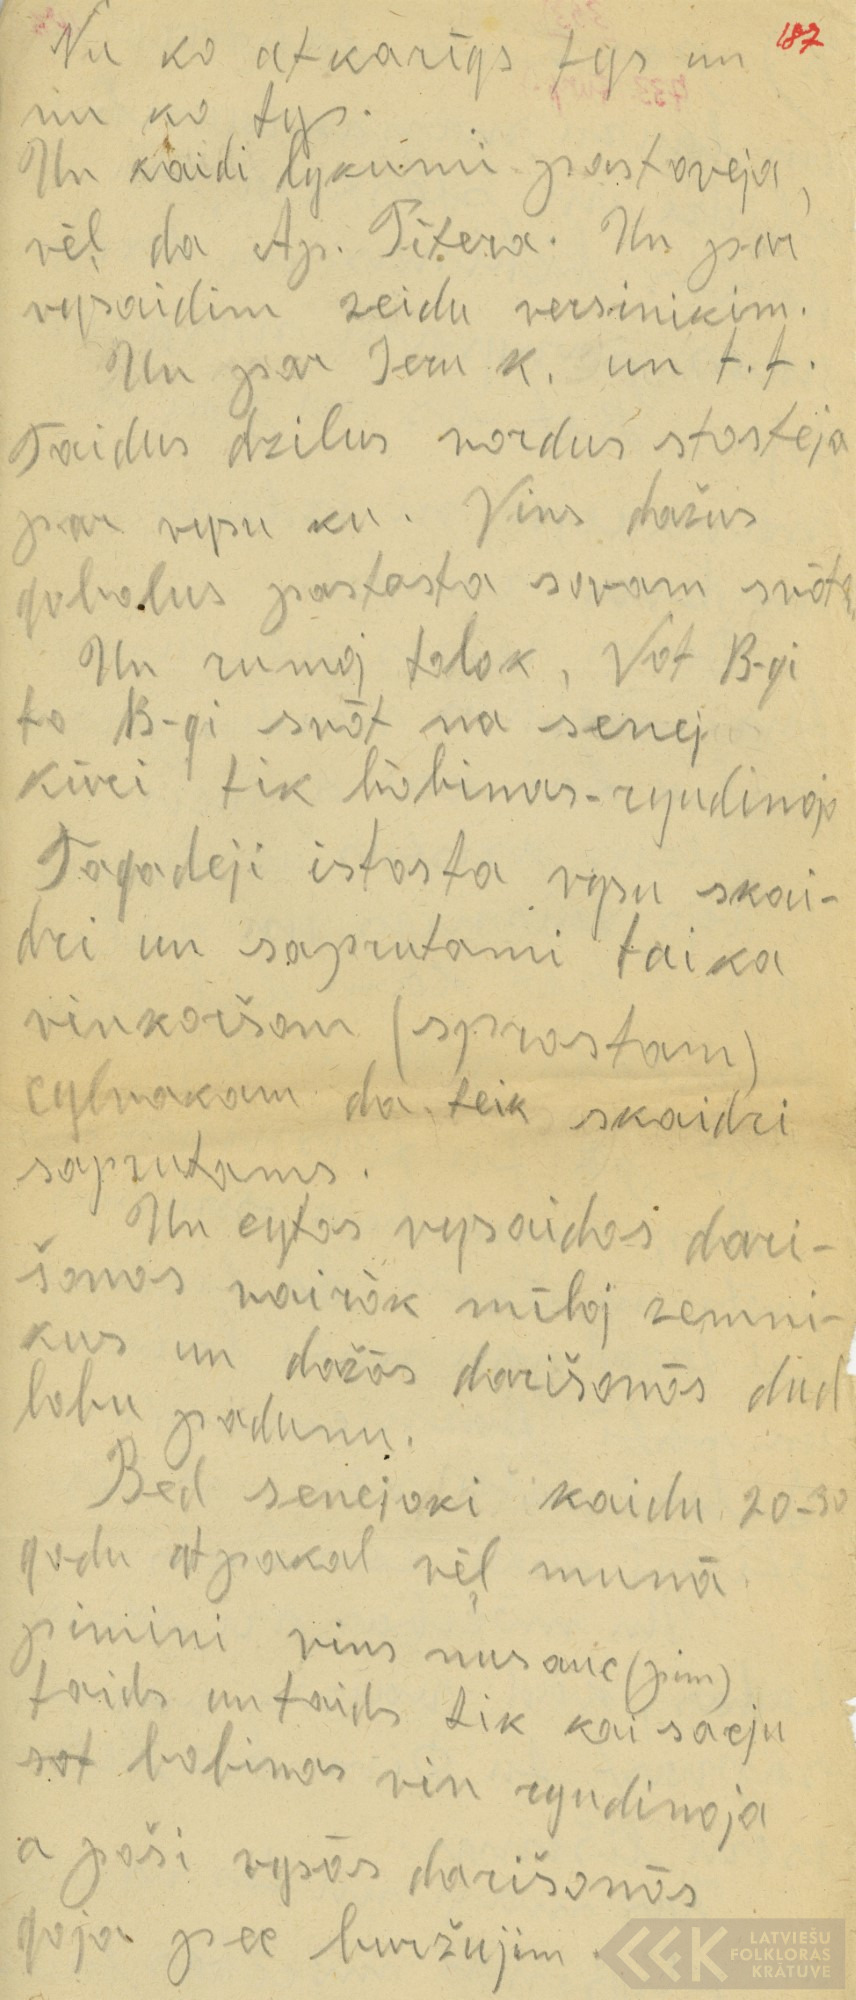 187
Nu ko atkarīgs tys un
nu ko tys.
Un kaidi lykumi pastoveja,
vēļ da Ap. Pītera. Un par
vysaidim zeidu versinikim.
Un par Jeru K. un t.t.
Taidus dzilus vordus stosteja
par vysu ku. Vins dažus
gobolus pastosta sovam
Un runoj tolok, Vot B-gi
to B-gi svōt na senej
kūri tik bōbinas-ryudinoj
Tagadeji istosta vysu skai-
dri un saprutami tai ka
vinkoršom (sprostam)
cylvakam da teik skaidri
saprutams.
Un cytos vysaidos dari-
šonos vairōk mīloj zemni-
kus un dažōs darišonōs dūd
lobu padumu.
Bed senejoki kaidu 20-30
godu atpakal vēļ munā
piminī vins nusauc (pim)
taids un taids tik kai sareju
sot bobinas vin ryudinoja
a poši vysōs darišonōs
goja pec buržujim.
LATVIEŠU
FOLKLORAS
KRĀTUVE